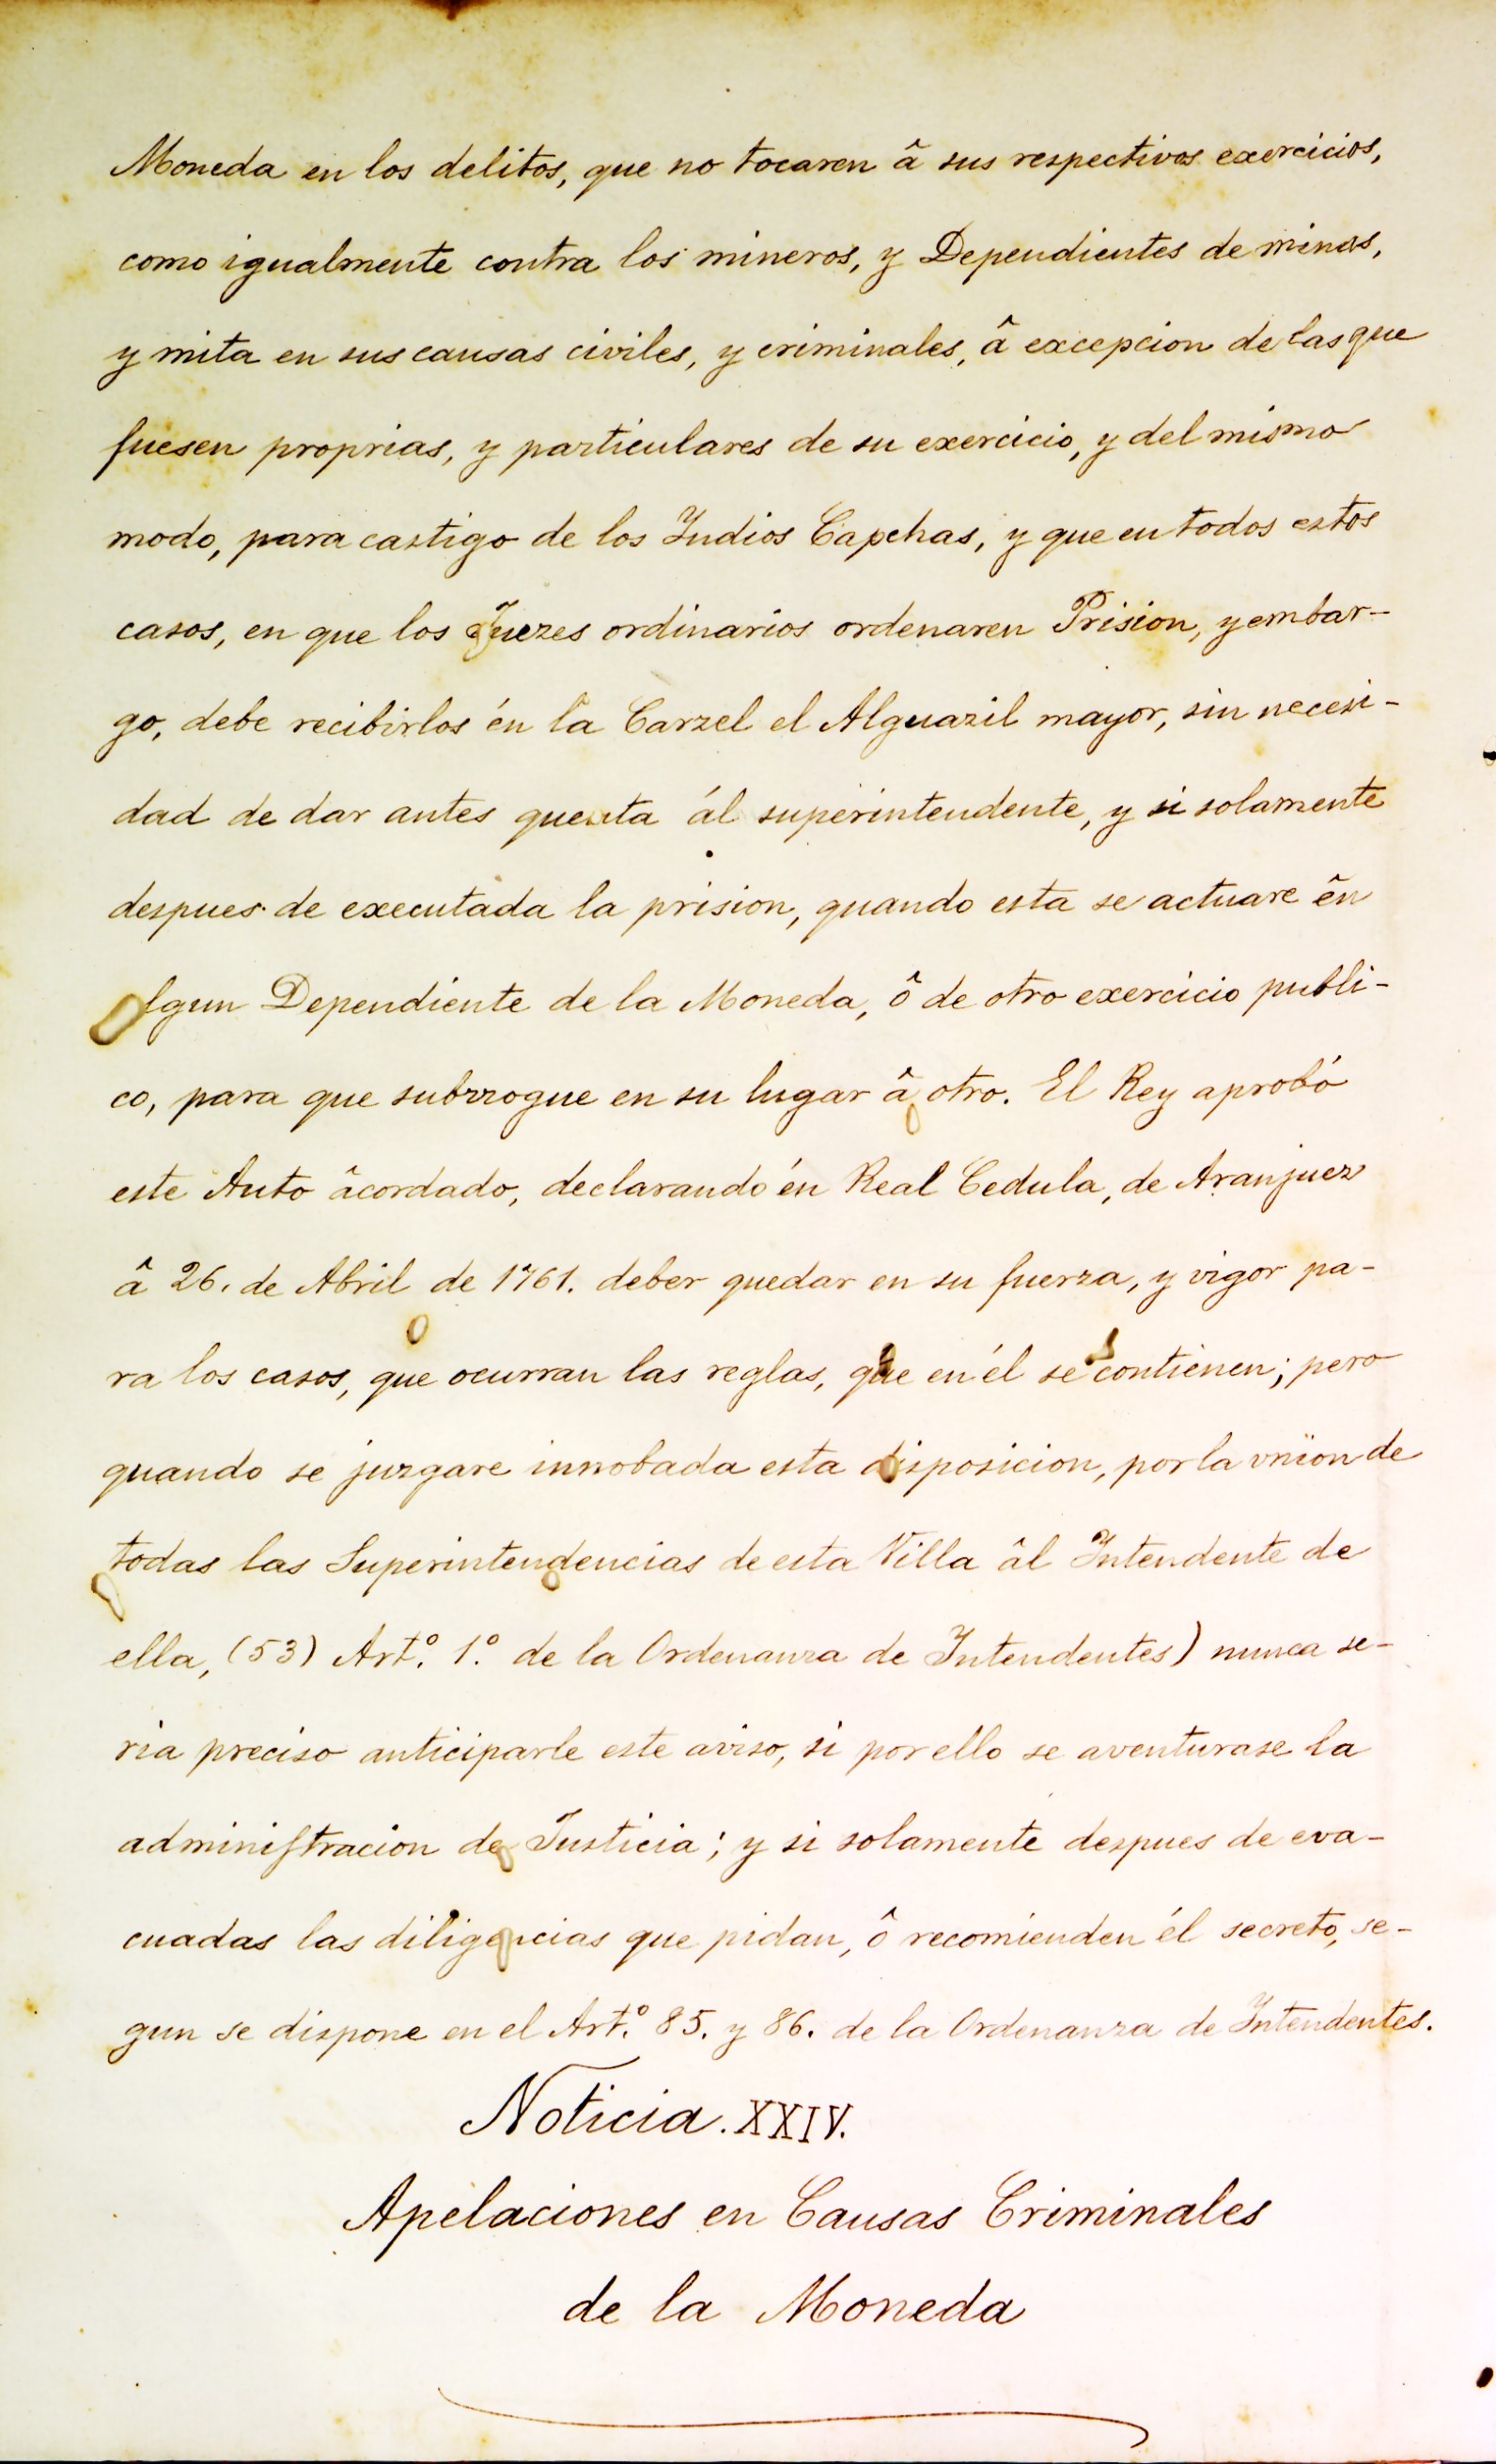 Moneda en los delitos, que no tocaren â sus respectivos exercicios,
como igualmente contra los mineros, y Dependientes de minas,
y mita en sus causas civiles, y criminales, â excepcion de las que
fuesen proprias, y particulares de su exercicio, y del mismo
modo, para castigo de los Indios Capchas, y que en todos estos
casos, en que los Juezes ordinarios ordenaren Prision, y embar-
go, debe recibirlos én la Carzel el Alguazil mayor, sin necesi-
dad de dar antes quenta ál superintendente, y si solamente
despues de executada la prision, quando esta se actuare ên
lgun Dependiente de la Moneda, ô de otro exercicio publi-
co, para que subrrogue en su lugar â otro. El Rey aprobó
este Auto âcordado, declarando én Real Cedula, de Aranjuez
â 26. de Abril de 1761. deber quedar en su fuerza, y vigor pa-
ra los casos, que ocurran las reglas, que en él se contienen; pero
quando se juzgare innobada esta disposicion, por la vnion de
todas las Superintendencias de esta Villa âl Intendente de
ella, (53) Art.º 1.º de la Ordenanza de Intendentes) nunca se-
ria preciso anticiparle este aviso, si por ello se aventurase la
adminiſtracion de Justicia; y si solamente despues de eva-
cuadas las diligencias que pidan, ô recomienden él secreto, se-
gun se dispone en el Art.º 85. y 86. de la Ordenanza de Intendentes.
Noticia. XXIV.
Apelaciones en Causas Criminales
de la Moneda